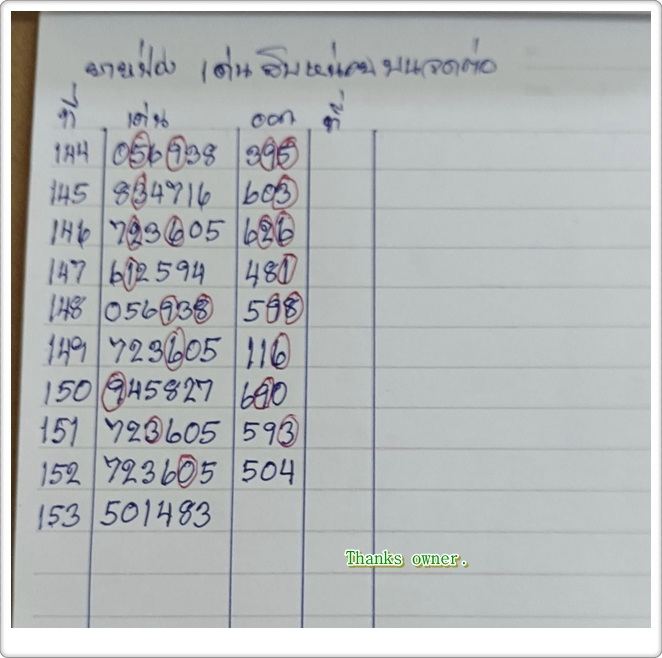 เด่น สิบหน่วย บนงวดต่อ
ที่ เด่น ออก ที่
144 056938 395
145 834716 603
146 723605 626
147 612594 481
148 056938 598
149 723605 116
150 945827 690
151 723605 593
152 723605 504
153 501483
Thanks owner.